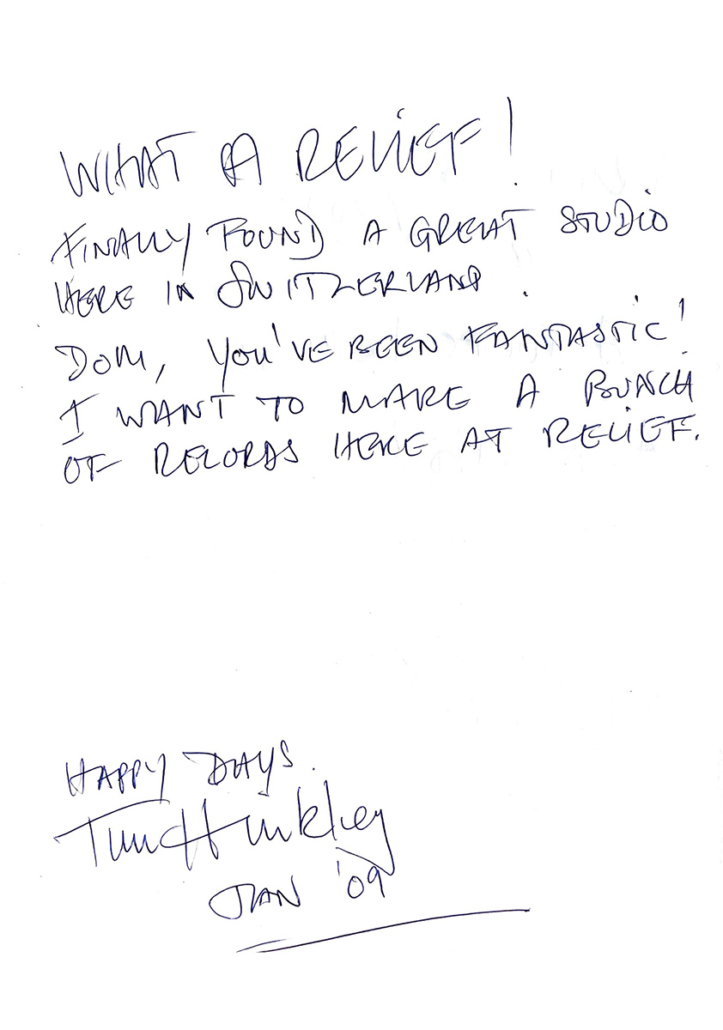 WHAT A RELIEF!
FINALLY FOUND A GREAT STUDIO
HERE IN SWITZERLAND.
DOM, YOU'VE BEEN FANTASTIC!
I WANT TO MAKE A BUNCH
OF RECORDS HERE AT RELIEF.
HAPPY DAYS.
Tim Hinkley
JAN '09